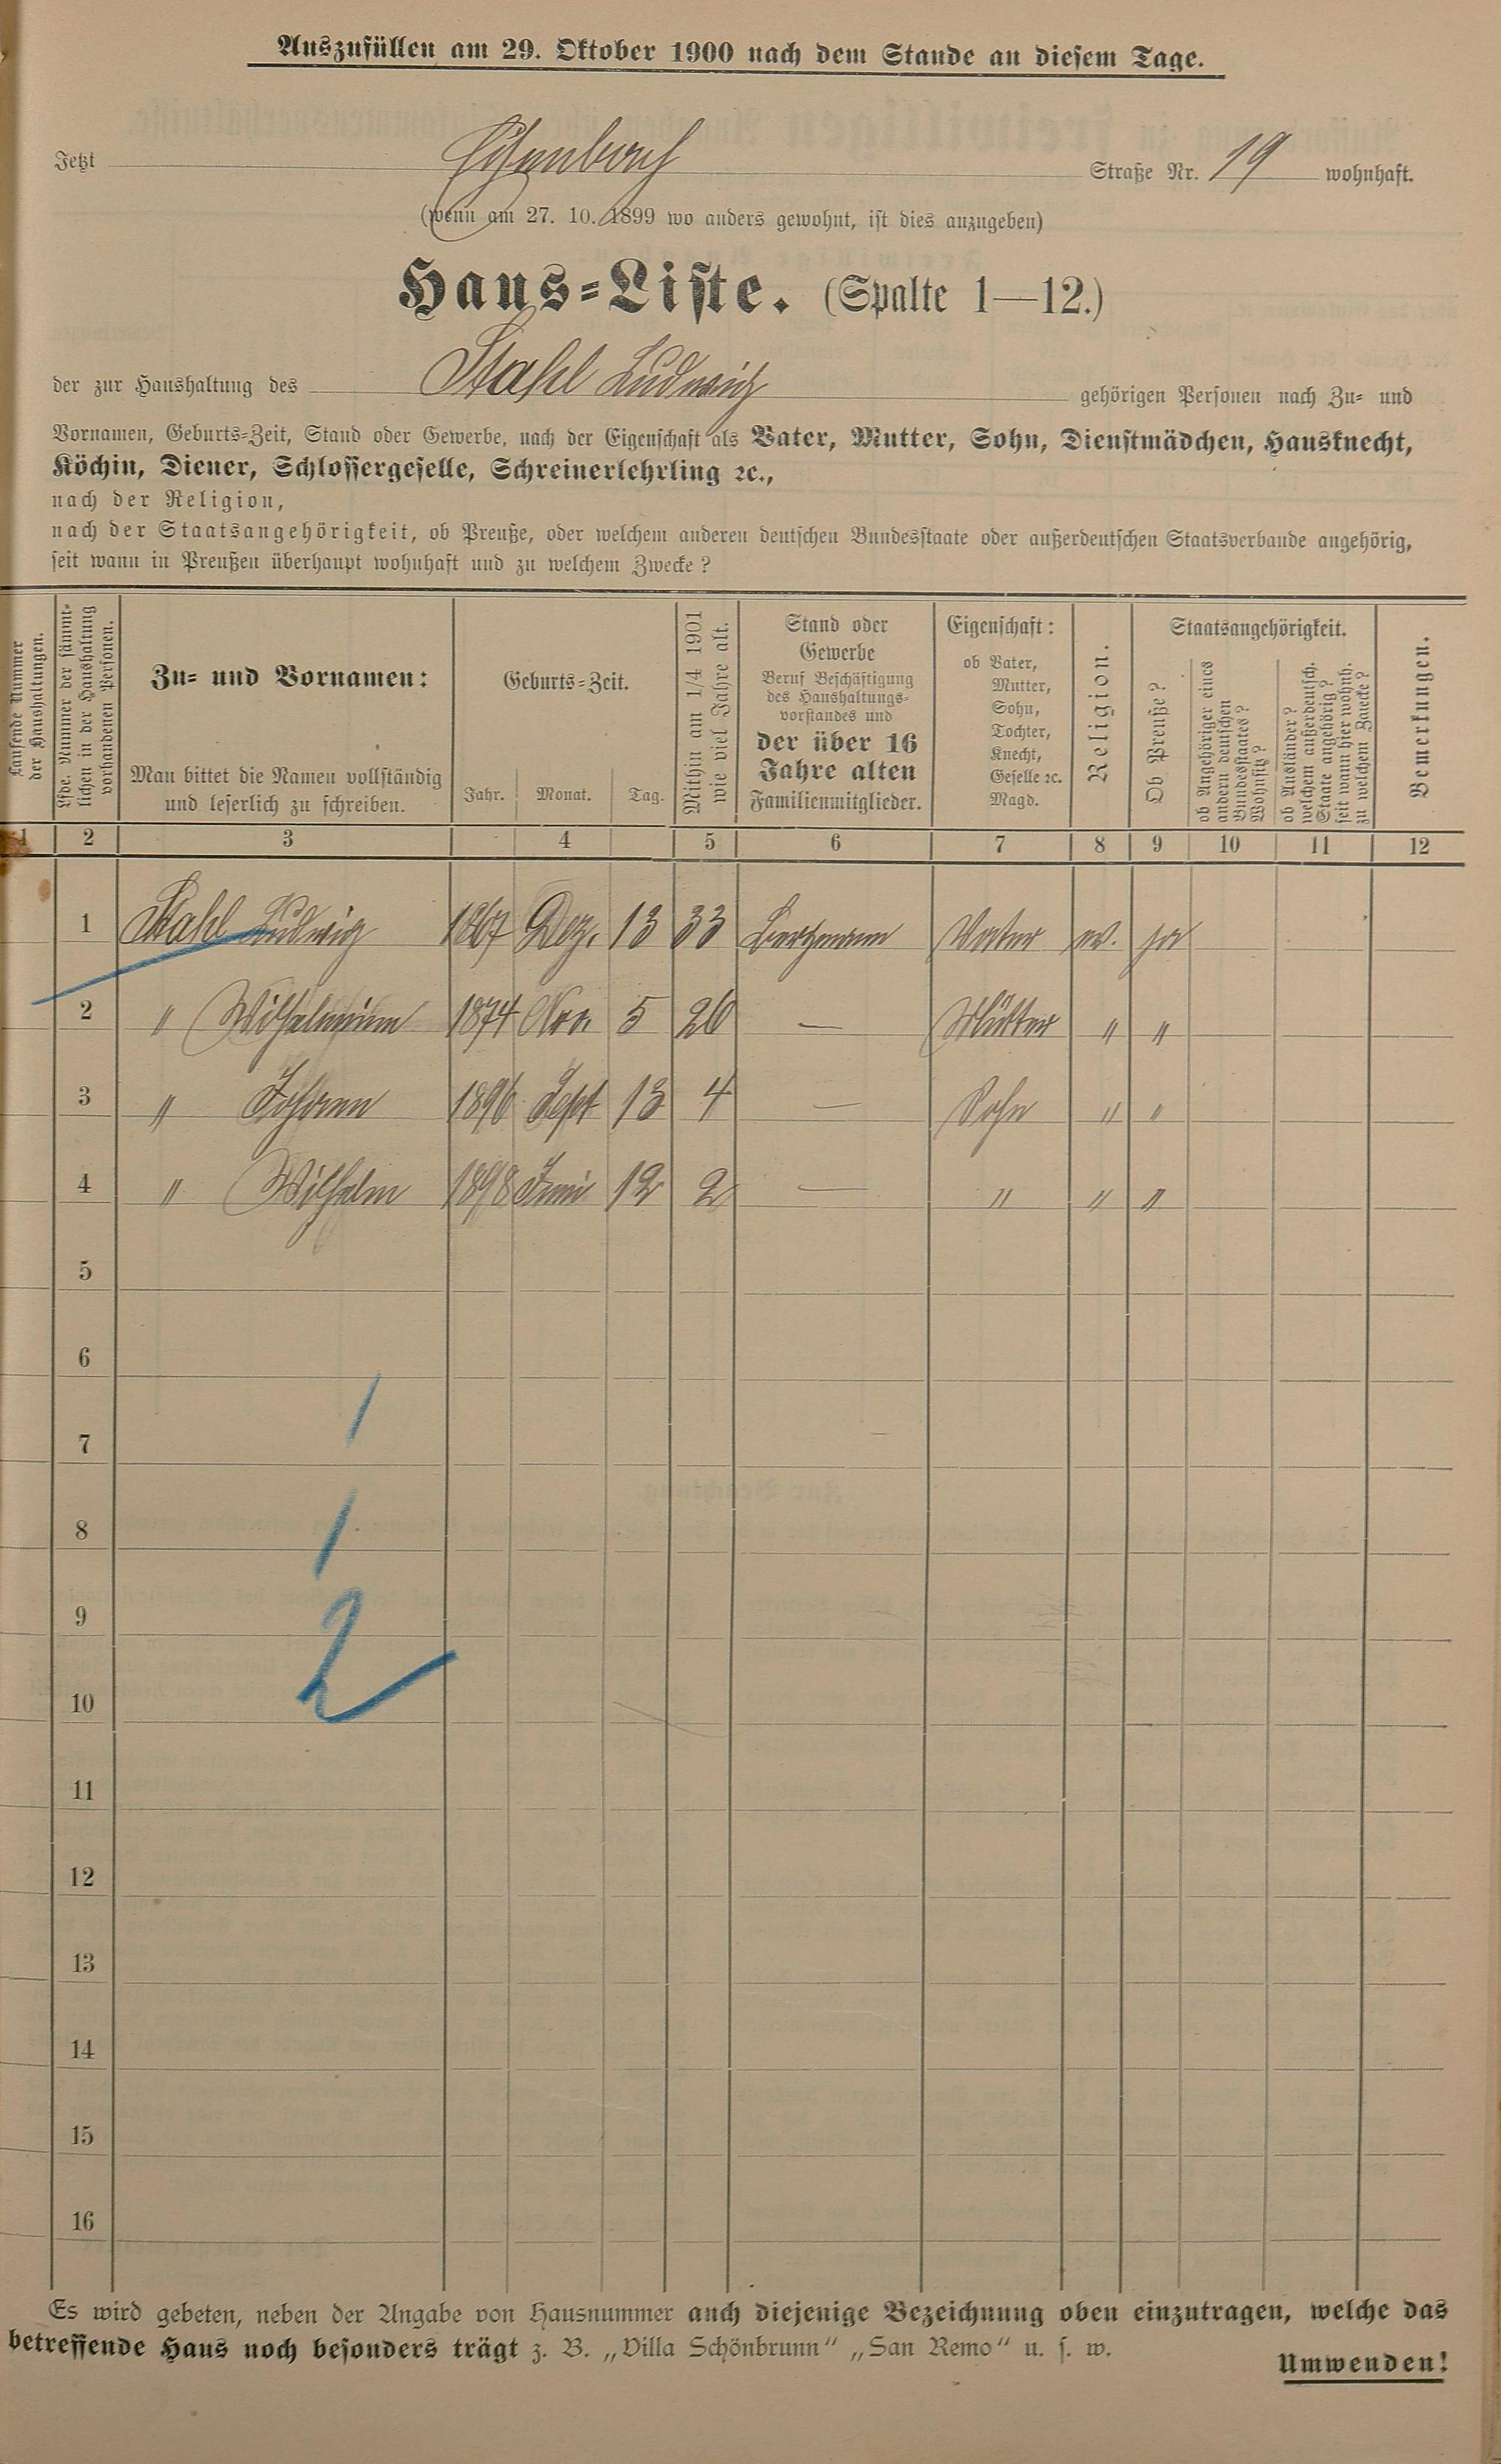 Auszufüllen am 29. Oktober 1900 nach dem Stande an diesem Tage.
Jetzt Straße Nr. 19 wohnhaft.
(wenn am 27. 10. 1899 wo anders gewohnt, ist dies anzugeben)
Haus-Liste. (Spalte 1—12.)
der zur Haushaltung des Stahl Ludwig gehörigen Personen nach Zu- und
Vornamen, Geburts-Zeit, Stand oder Gewerbe, nach der Eigenschaft als Vater, Mutter, Sohn, Dienstmädchen, Hausknecht,
Köchin, Diener, Schlossergeselle, Schreinerlehrling ꝛc.,
nach der Religion,
nach der Staatsangehörigkeit, ob Preuße, oder welchem anderen deutschen Bundesstaate oder außerdeutschen Staatsverbande angehörig,
seit wann in Preußen überhaupt wohnhaft und zu welchem Zwecke?
Laufende Nummer
der Haushaltungen.
Lfde. Nummer der sämmt-
lichen in der Haushaltung
vorhandenen Personen.
Zu- und Vornamen:
Man bittet die Namen vollständig
und leserlich zu schreiben.
Geburts-Zeit.
Jahr. Monat. Tag.
Mithin am 1/4 1901
wie viel Jahre alt.
Stand oder
Gewerbe
Beruf Beschäftigung
des Haushaltungs-
vorstandes und
der über 16
Jahre alten
Familienmitglieder.
Eigenschaft:
ob Vater,
Mutter,
Sohn,
Tochter,
Knecht,
Geselle ꝛc.
Magd.
Religion.
Staatsangehörigkeit.
Ob Preuße?
ob Angehöriger eines
andern deutschen
Bundesstaates?
Wohnsitz?
ob Ausländer?
welchem außerdeutsch.
Staate angehörig?
seit wann hier wohnh.
zu welchem Zwecke?
Bemerkungen.
1 2 3 4 5 6 7 8 9 10 11 12
1 Stahl Ludwig 1867 Dez. 13 33 Bergmann Vater ev. ja
2 " Wilhelmine 1874 Nov. 5 26 — Mutter " "
3 " Johann 1896 Sept 13 4 — Sohn " "
4 " Wilhelm 1898 Juni 12 2 — " " "
5
6
7
8
9
10
11
12
13
14
15
16
1
1
2
Es wird gebeten, neben der Angabe von Hausnummer auch diejenige Bezeichnung oben einzutragen, welche das
betreffende Haus noch besonders trägt z. B. „Villa Schönbrunn“ „San Remo“ u. s. w.
Umwenden!